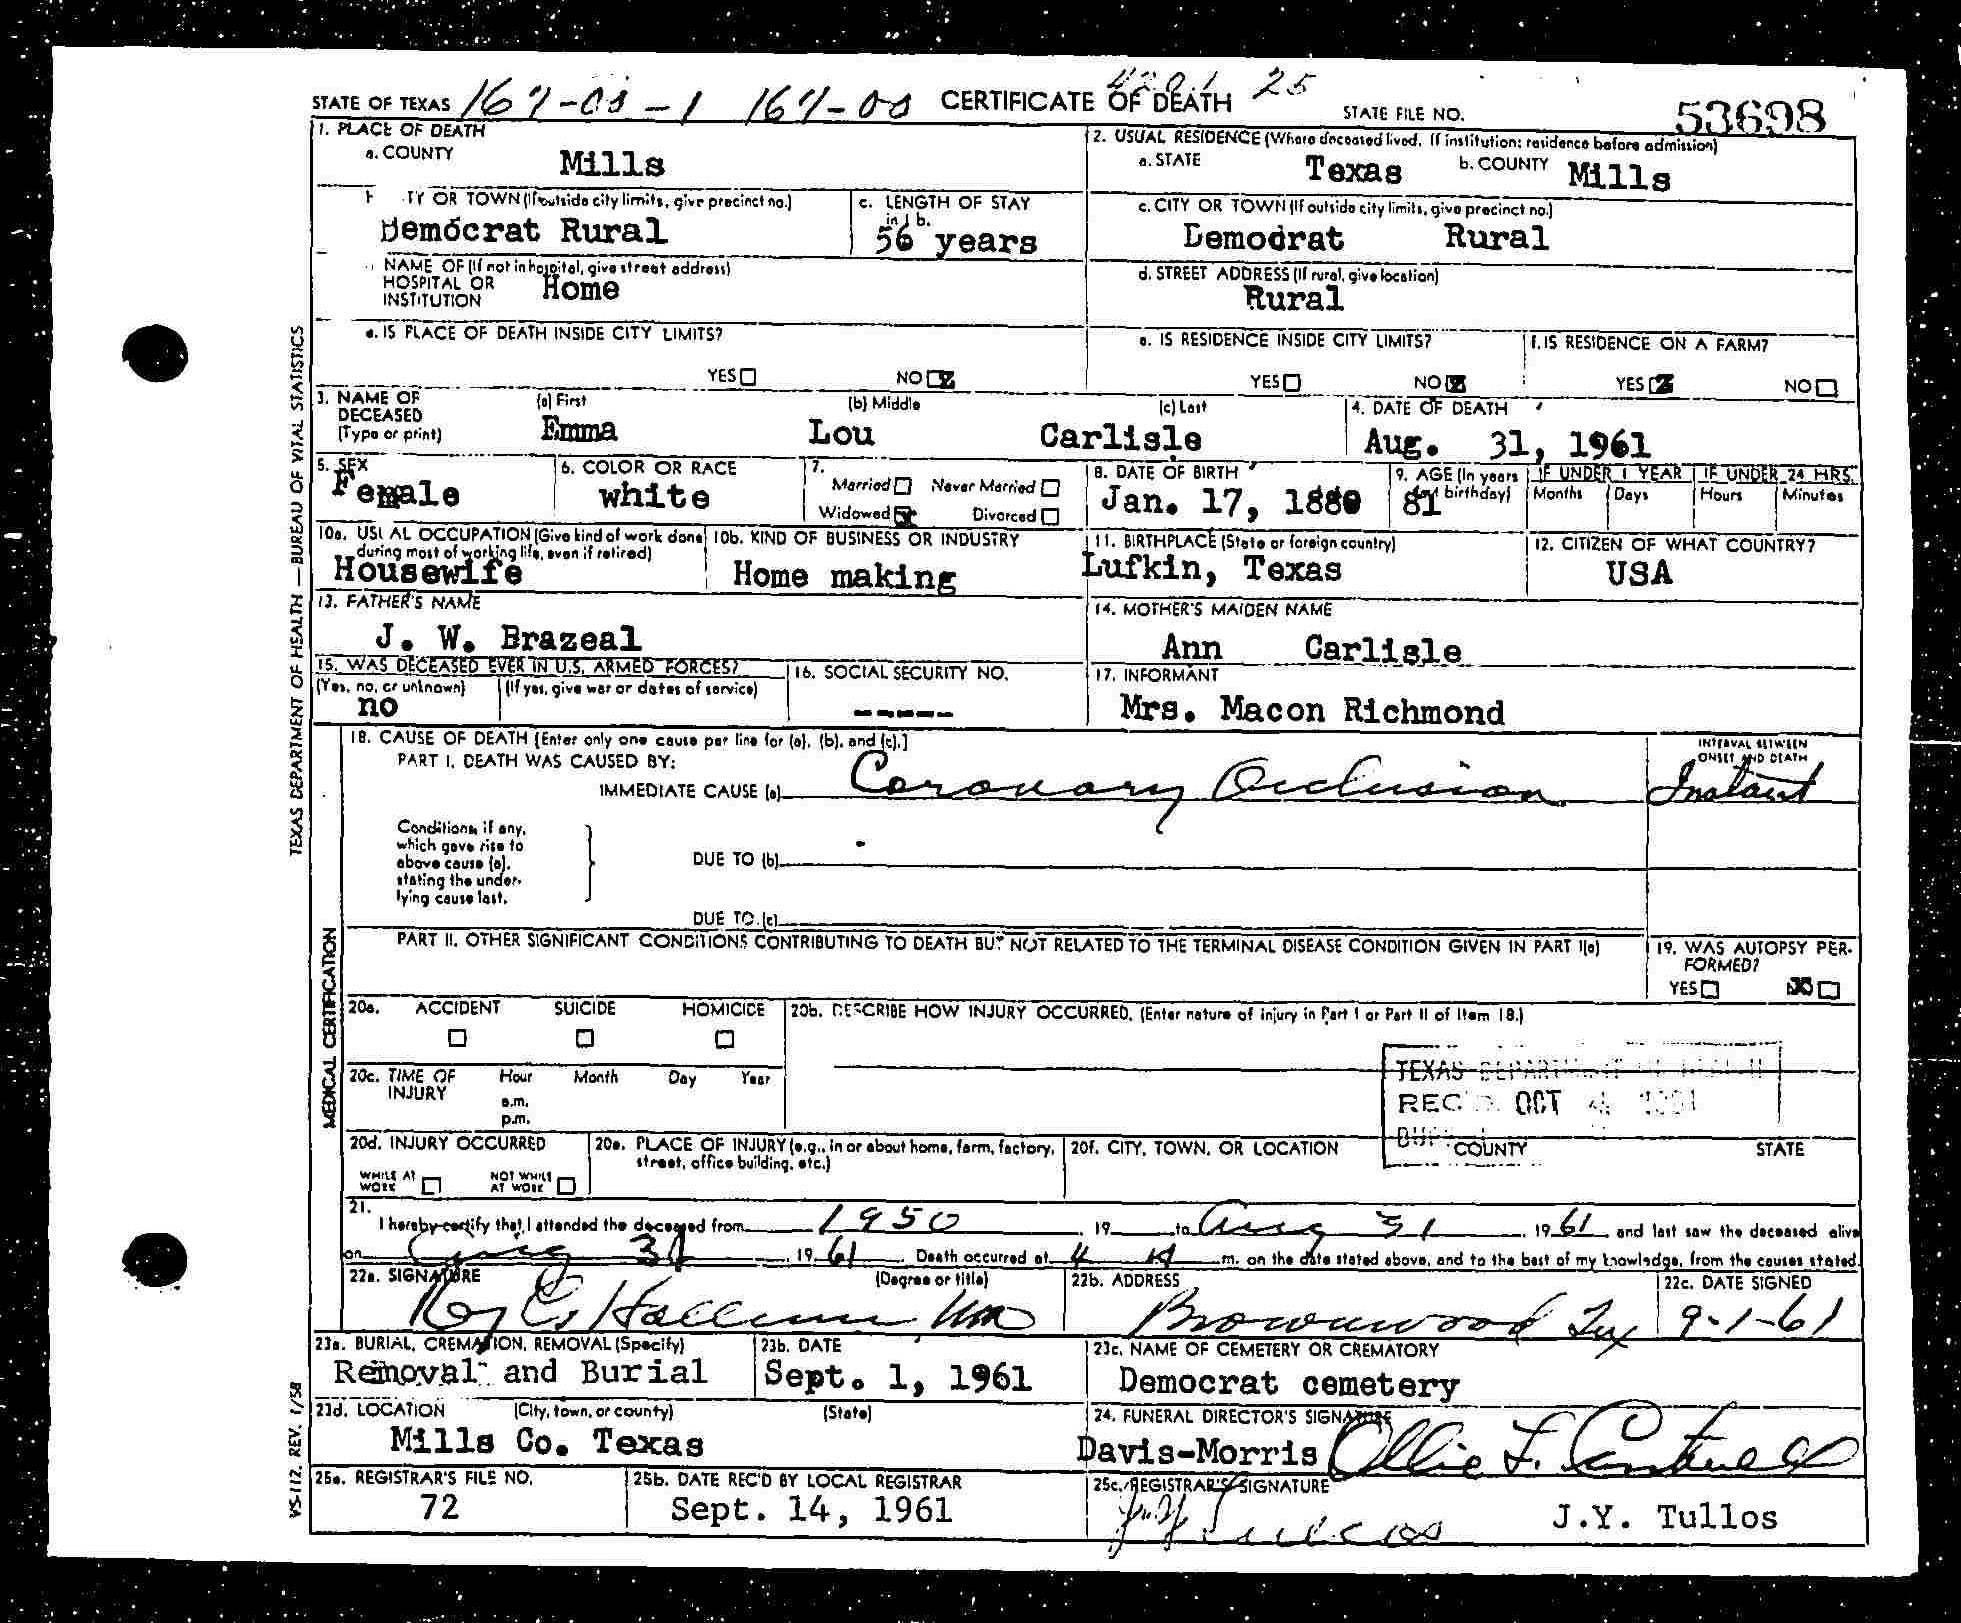 STATE OF TEXAS 167-00-1 167-00 CERTIFICATE OF DEATH 4201 25 STATE FILE NO. 53698
1. PLACE OF DEATH
a. COUNTY Mills
2. USUAL RESIDENCE (Where deceased lived. If institution: residence before admission)
a. STATE Texas b. COUNTY Mills
TY OR TOWN (If outside city limits, give precinct no.)
Democrat Rural
c. LENGTH OF STAY in 1 b.
56 years
c. CITY OR TOWN (If outside city limits, give precinct no.)
Democrat Rural
NAME OF (If not in hospital, give street address)
HOSPITAL OR
INSTITUTION Home
d. STREET ADDRESS (If rural, give location)
Rural
e. IS PLACE OF DEATH INSIDE CITY LIMITS?
YES NO X
e. IS RESIDENCE INSIDE CITY LIMITS?
YES NO X
f. IS RESIDENCE ON A FARM?
YES X NO
3. NAME OF DECEASED (Type or print)
(a) First Emma (b) Middle Lou (c) Last Carlisle
4. DATE OF DEATH
Aug. 31, 1961
5. SEX
Female
6. COLOR OR RACE
white
7.
Married Never Married
Widowed X Divorced
8. DATE OF BIRTH
Jan. 17, 1880
9. AGE (In years birthday)
81
IF UNDER 1 YEAR IF UNDER 24 HRS.
Months Days Hours Minutes
10a. USUAL OCCUPATION (Give kind of work done during most of working life, even if retired)
Housewife
10b. KIND OF BUSINESS OR INDUSTRY
Home making
11. BIRTHPLACE (State or foreign country)
Lufkin, Texas
12. CITIZEN OF WHAT COUNTRY?
USA
13. FATHER'S NAME
J. W. Brazeal
14. MOTHER'S MAIDEN NAME
Ann Carlisle
15. WAS DECEASED EVER IN U.S. ARMED FORCES?
(Yes, no, or unknown) (If yes, give war or dates of service)
no
16. SOCIAL SECURITY NO.
-----
17. INFORMANT
Mrs. Macon Richmond
18. CAUSE OF DEATH [Enter only one cause per line for (a), (b), and (c).]
PART I. DEATH WAS CAUSED BY:
IMMEDIATE CAUSE (a) Coronary Occlusion
INTERVAL BETWEEN ONSET AND DEATH
Instant
Conditions if any, which gave rise to above cause (a), stating the underlying cause last.
DUE TO (b)
DUE TO (c)
PART II. OTHER SIGNIFICANT CONDITIONS CONTRIBUTING TO DEATH BUT NOT RELATED TO THE TERMINAL DISEASE CONDITION GIVEN IN PART I(a)
19. WAS AUTOPSY PERFORMED?
YES
20a. ACCIDENT SUICIDE HOMICIDE
20b. DESCRIBE HOW INJURY OCCURRED. (Enter nature of injury in Part I or Part II of Item 18.)
20c. TIME OF INJURY Hour Month Day Year
a.m.
p.m.
TEXAS DEPARTMENT OF HEALTH
REC'D OCT 4 1961
20d. INJURY OCCURRED
WHILE AT WORK NOT WHILE AT WORK
20e. PLACE OF INJURY (e.g., in or about home, farm, factory, street, office building, etc.)
20f. CITY, TOWN, OR LOCATION COUNTY STATE
21.
I hereby certify that I attended the deceased from 1950, 19 to Aug 31, 1961 and last saw the deceased alive
on Aug 31 1961. Death occurred at 4 A m. on the date stated above, and to the best of my knowledge, from the causes stated.
22a. SIGNATURE (Degree or title)
Roy G Hallum MD
22b. ADDRESS
Brownwood Tex
22c. DATE SIGNED
9-1-61
23a. BURIAL, CREMATION, REMOVAL (Specify)
Removal and Burial
23b. DATE
Sept. 1, 1961
23c. NAME OF CEMETERY OR CREMATORY
Democrat cemetery
23d. LOCATION (City, town, or county) (State)
Mills Co. Texas
24. FUNERAL DIRECTOR'S SIGNATURE
Davis-Morris Ollie F. Cantwell
25a. REGISTRAR'S FILE NO.
72
25b. DATE REC'D BY LOCAL REGISTRAR
Sept. 14, 1961
25c. REGISTRAR'S SIGNATURE
J.Y. Tullos J.Y. Tullos
TEXAS DEPARTMENT OF HEALTH — BUREAU OF VITAL STATISTICS
MEDICAL CERTIFICATION
VS-112. REV. 1/58